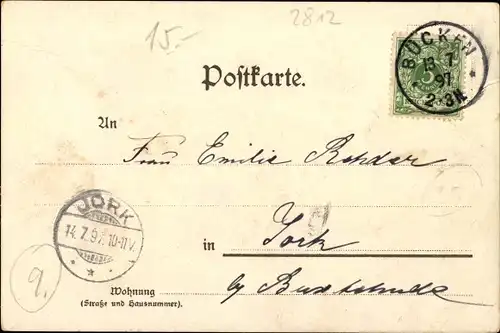 15.-
2812
BÜCKEN
13 7
97
2-3N
Postkarte.
An
Frau Emilie Rohdar
JORK
14.7.97. 10-11V.
in Jork
by Buxtehude
9.
Wohnung
(Straße und Hausnummer).